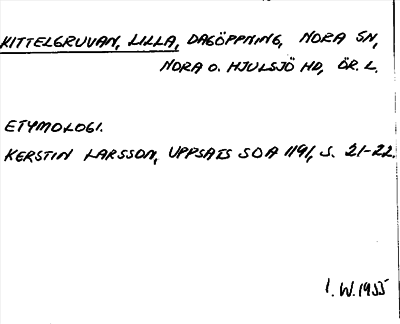 KITTELGRUVAN, LILLA, DAGÖPPNING, NORA SN,
NORA O. HJULSJÖ HD, ÖR. L.
ETYMOLOGI.
KERSTIN LARSSON, UPPSATS SOA 1191, S. 21-22.
I. W. 1955